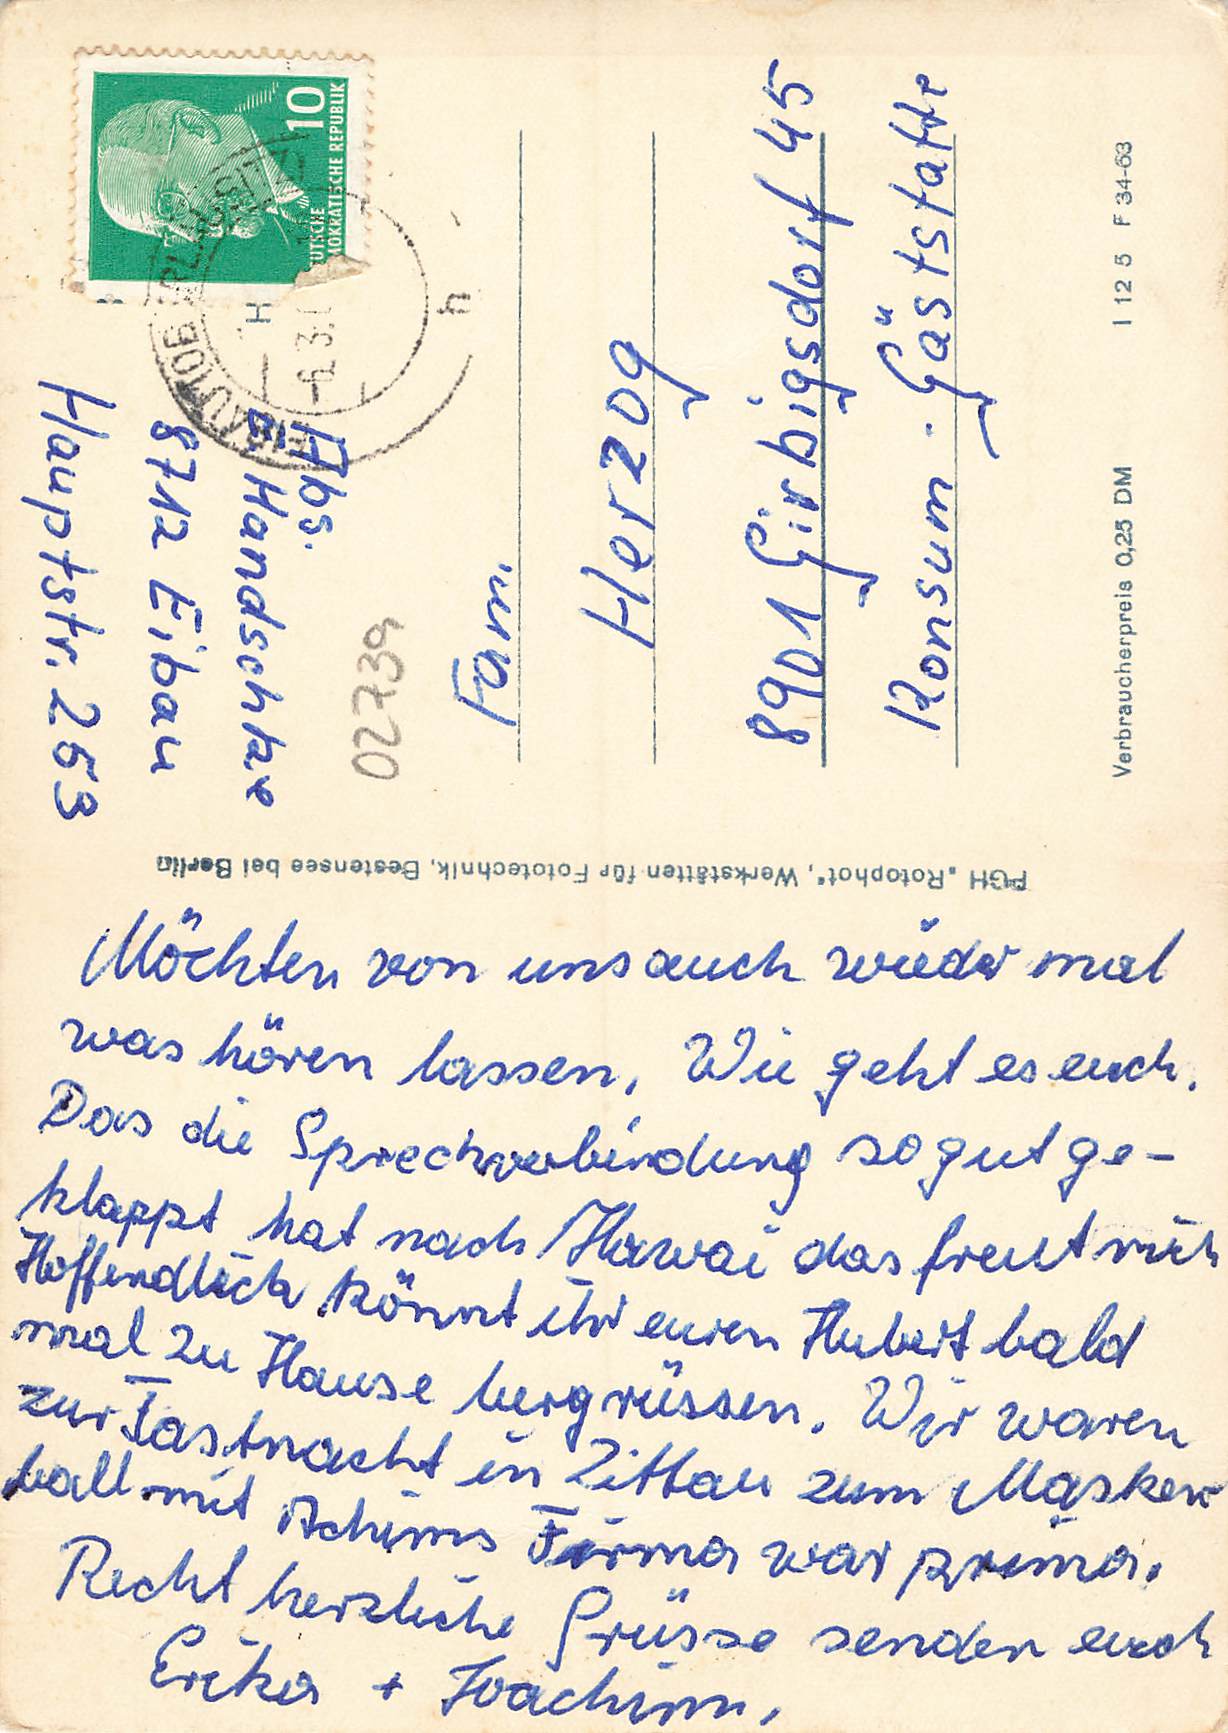 Möchten von uns auch wieder mal
was hören lassen. Wie geht es euch.
Das die Sprechverbindung so gut ge-
klappt hat nach Hawai das freut mich
Hoffendlich könnt ihr euren Hubert bald
mal zu Hause bergrüssen. Wir waren
zur Fastnacht in Zittau zum Masken-
ball mit Achims Firma war prima.
Recht herzliche Grüsse senden euch
Erika + Joachim.
PGH „Rotophot“, Werkstätten für Fototechnik, Bestensee bei Berlin
Abs.
Handschke
8712 Eibau
Hauptstr. 263
02739
Fam.
Herzog
8901 Girbigsdorf 45
Konsum-Gäststätte
Verbraucherpreis 0,25 DM
I 12 5 F 34-63
10
DEMOKRATISCHE REPUBLIK
H
h